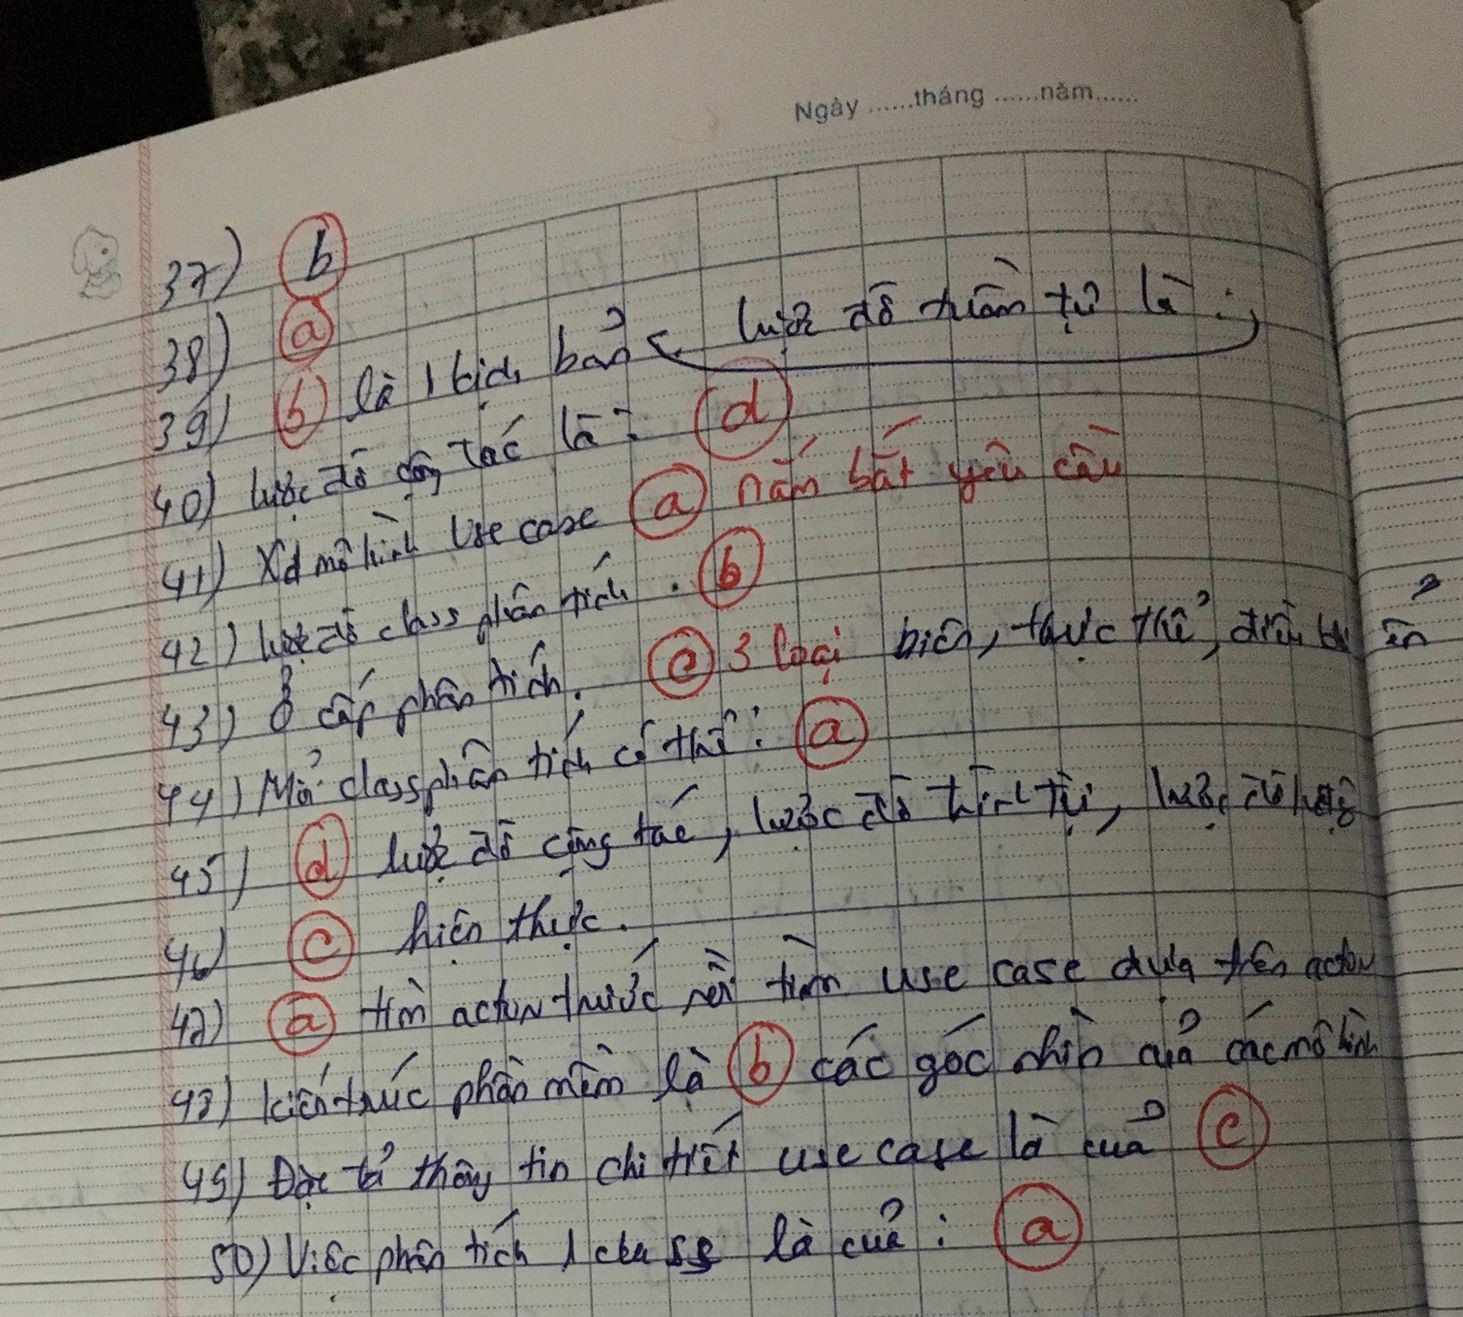 Ngày ......tháng ......năm......
37) b
38) a
39) b là 1 kịch bản lược đồ tuần tự là :
40) lược đồ cộng tác là : d
41) Xd mô hình Use case a nắm bắt yêu cầu
42) lược đồ class phân tích . b
43) Ở cấp phân tích. c 3 loại biên, thực thể, điều khiển
44) Mỗi class phân tích có thể : a
45) d lược đồ cộng tác, lược đồ trình tự, lược đồ
46) c hiện thực.
47) a tìm actor trước rồi tìm use case dựa trên actor
48) kiến trúc phần mềm là b các góc nhìn của các mô hình
49) Đặc tả thông tin chi tiết use case là của c
50) Việc phân tích 1 class là của : a